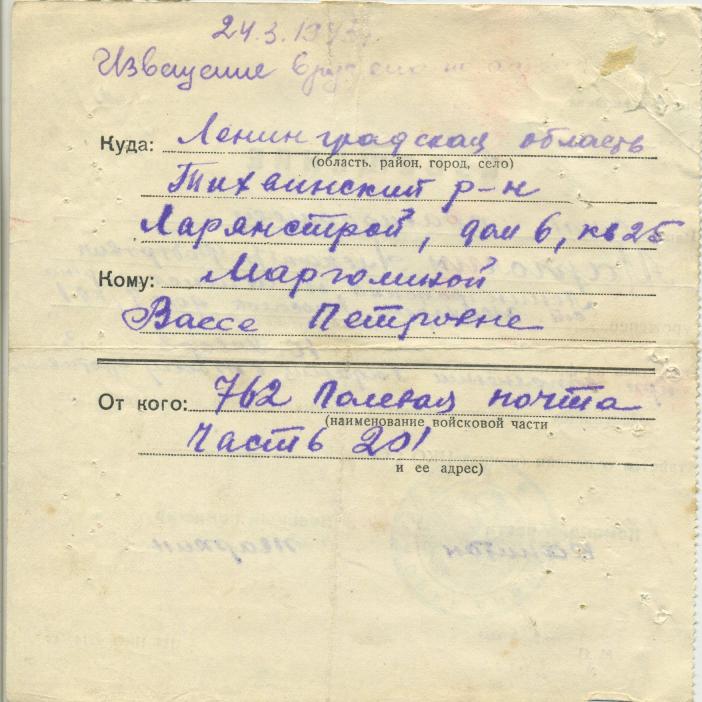 24.3.194
Извещение
Куда: Ленинградская область
(область, район, город, село)
Тихвинский р-н
Ларянстрой, дом 6, кв 25
Кому: Марголиной
Вассе Петровне
От кого: 762 Полевая почта
(наименование войсковой части
Часть 201
и ее адрес)
Капитан Жаркин